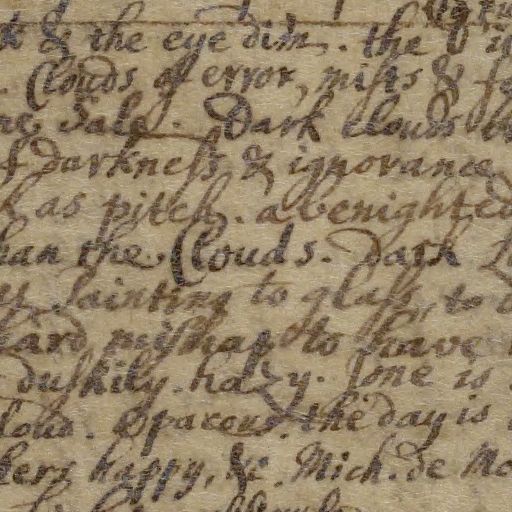 & the eye dim. the
Clouds of error, mists &
Dark clouds
of darkness & ignorance
as pitch. a benighted
than the Clouds. Dark
to glass, to
hard mishap to have
duskily. hazy. some is
Opacous. the day is
very happy, &c. Mich. de Mo